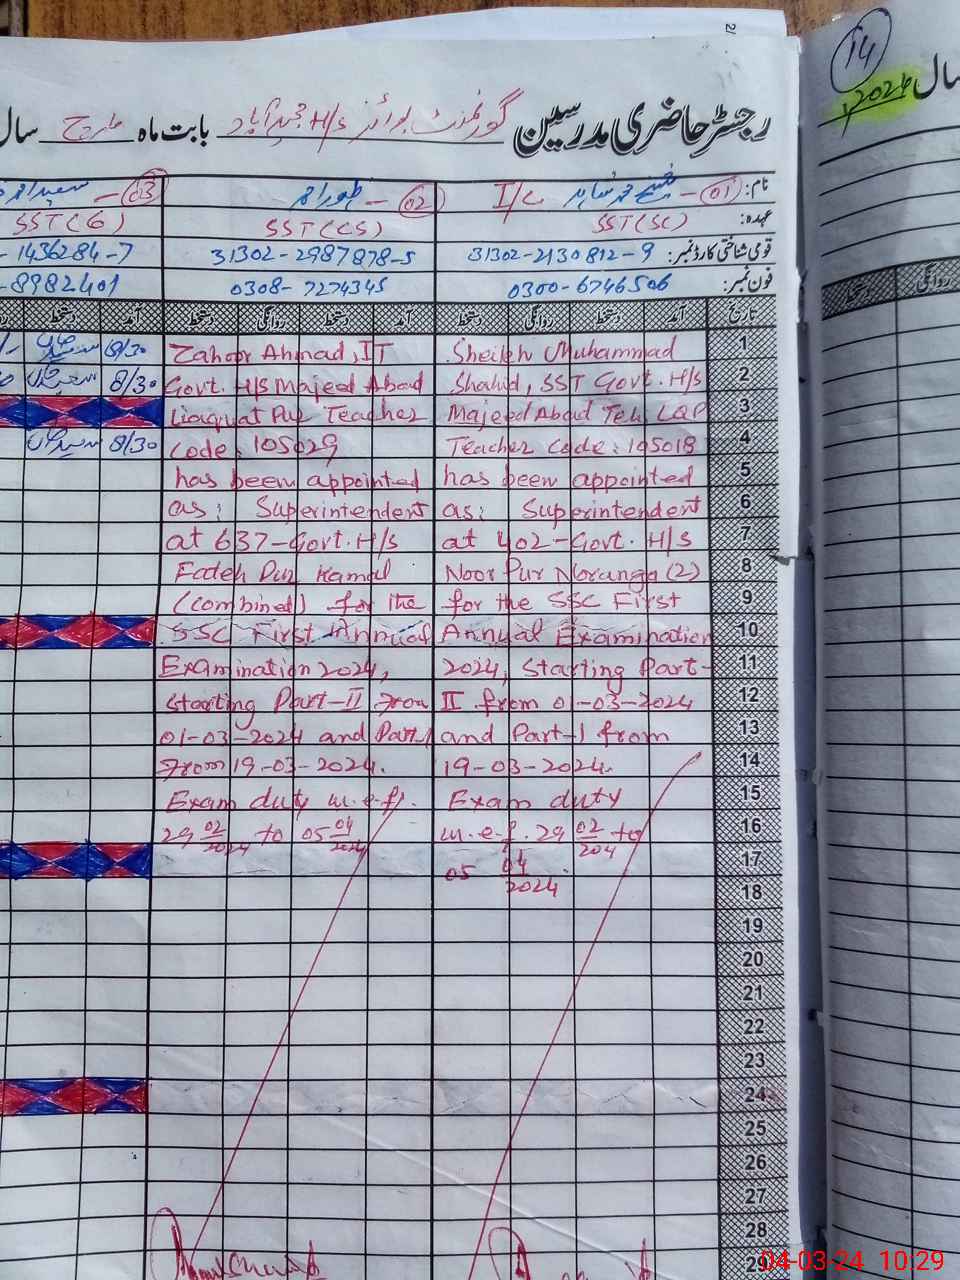 14
2024
سال
رجسٹر حاضری مدرسین گورنمنٹ بوائز H/S مجید آباد بابت ماہ مارچ سال
نام: 01 - شیخ محمد شاہد I/C
02 - ظہور احمد
03 - سعید احمد
عہدہ: SST (SC)
SST (CS)
SST (G)
قومی شناختی کارڈ نمبر: 31302-2130812-9
31302-2987878-5
- 1436284-7
فون نمبر: 0300-6746506
0308-7274345
-8982401
تاریخ آمد دستخط روانگی دستخط آمد دستخط روانگی دستخط آمد دستخط
روانگی
دستخط
1
2
3
4
5
6
7
8
9
10
11
12
13
14
15
16
17
18
19
20
21
22
23
24
25
26
27
28
29
Sheikh Muhammad
Shahid, SST Govt. H/S
Majeed Abad Teh LQP
Teacher Code: 105018
has been appointed
as: Superintendent
at 402-Govt. H/S
Noor Pur Noranga (2)
for the SSC First
Annual Examination
2024, Starting Part-
II from 01-03-2024
and Part-I from
19-03-2024.
Exam duty
w.e.f. 29 02/204 to
05 04/2024.
Zahoor Ahmad, IT
Govt. H/S Majeed Abad
Liaquat Pur Teacher
Code: 105029
has been appointed
as: Superintendent
at 637-Govt. H/S
Fateh Pur Kamal
(combined) for the
SSC First Annual
Examination 2024,
Starting Part-II from
01-03-2024 and Part I
From 19-03-2024.
Exam duty w.e.f.
29 02/2024 to 05 04/2024
8/30
8/30
8/30
04-03-24 10:29